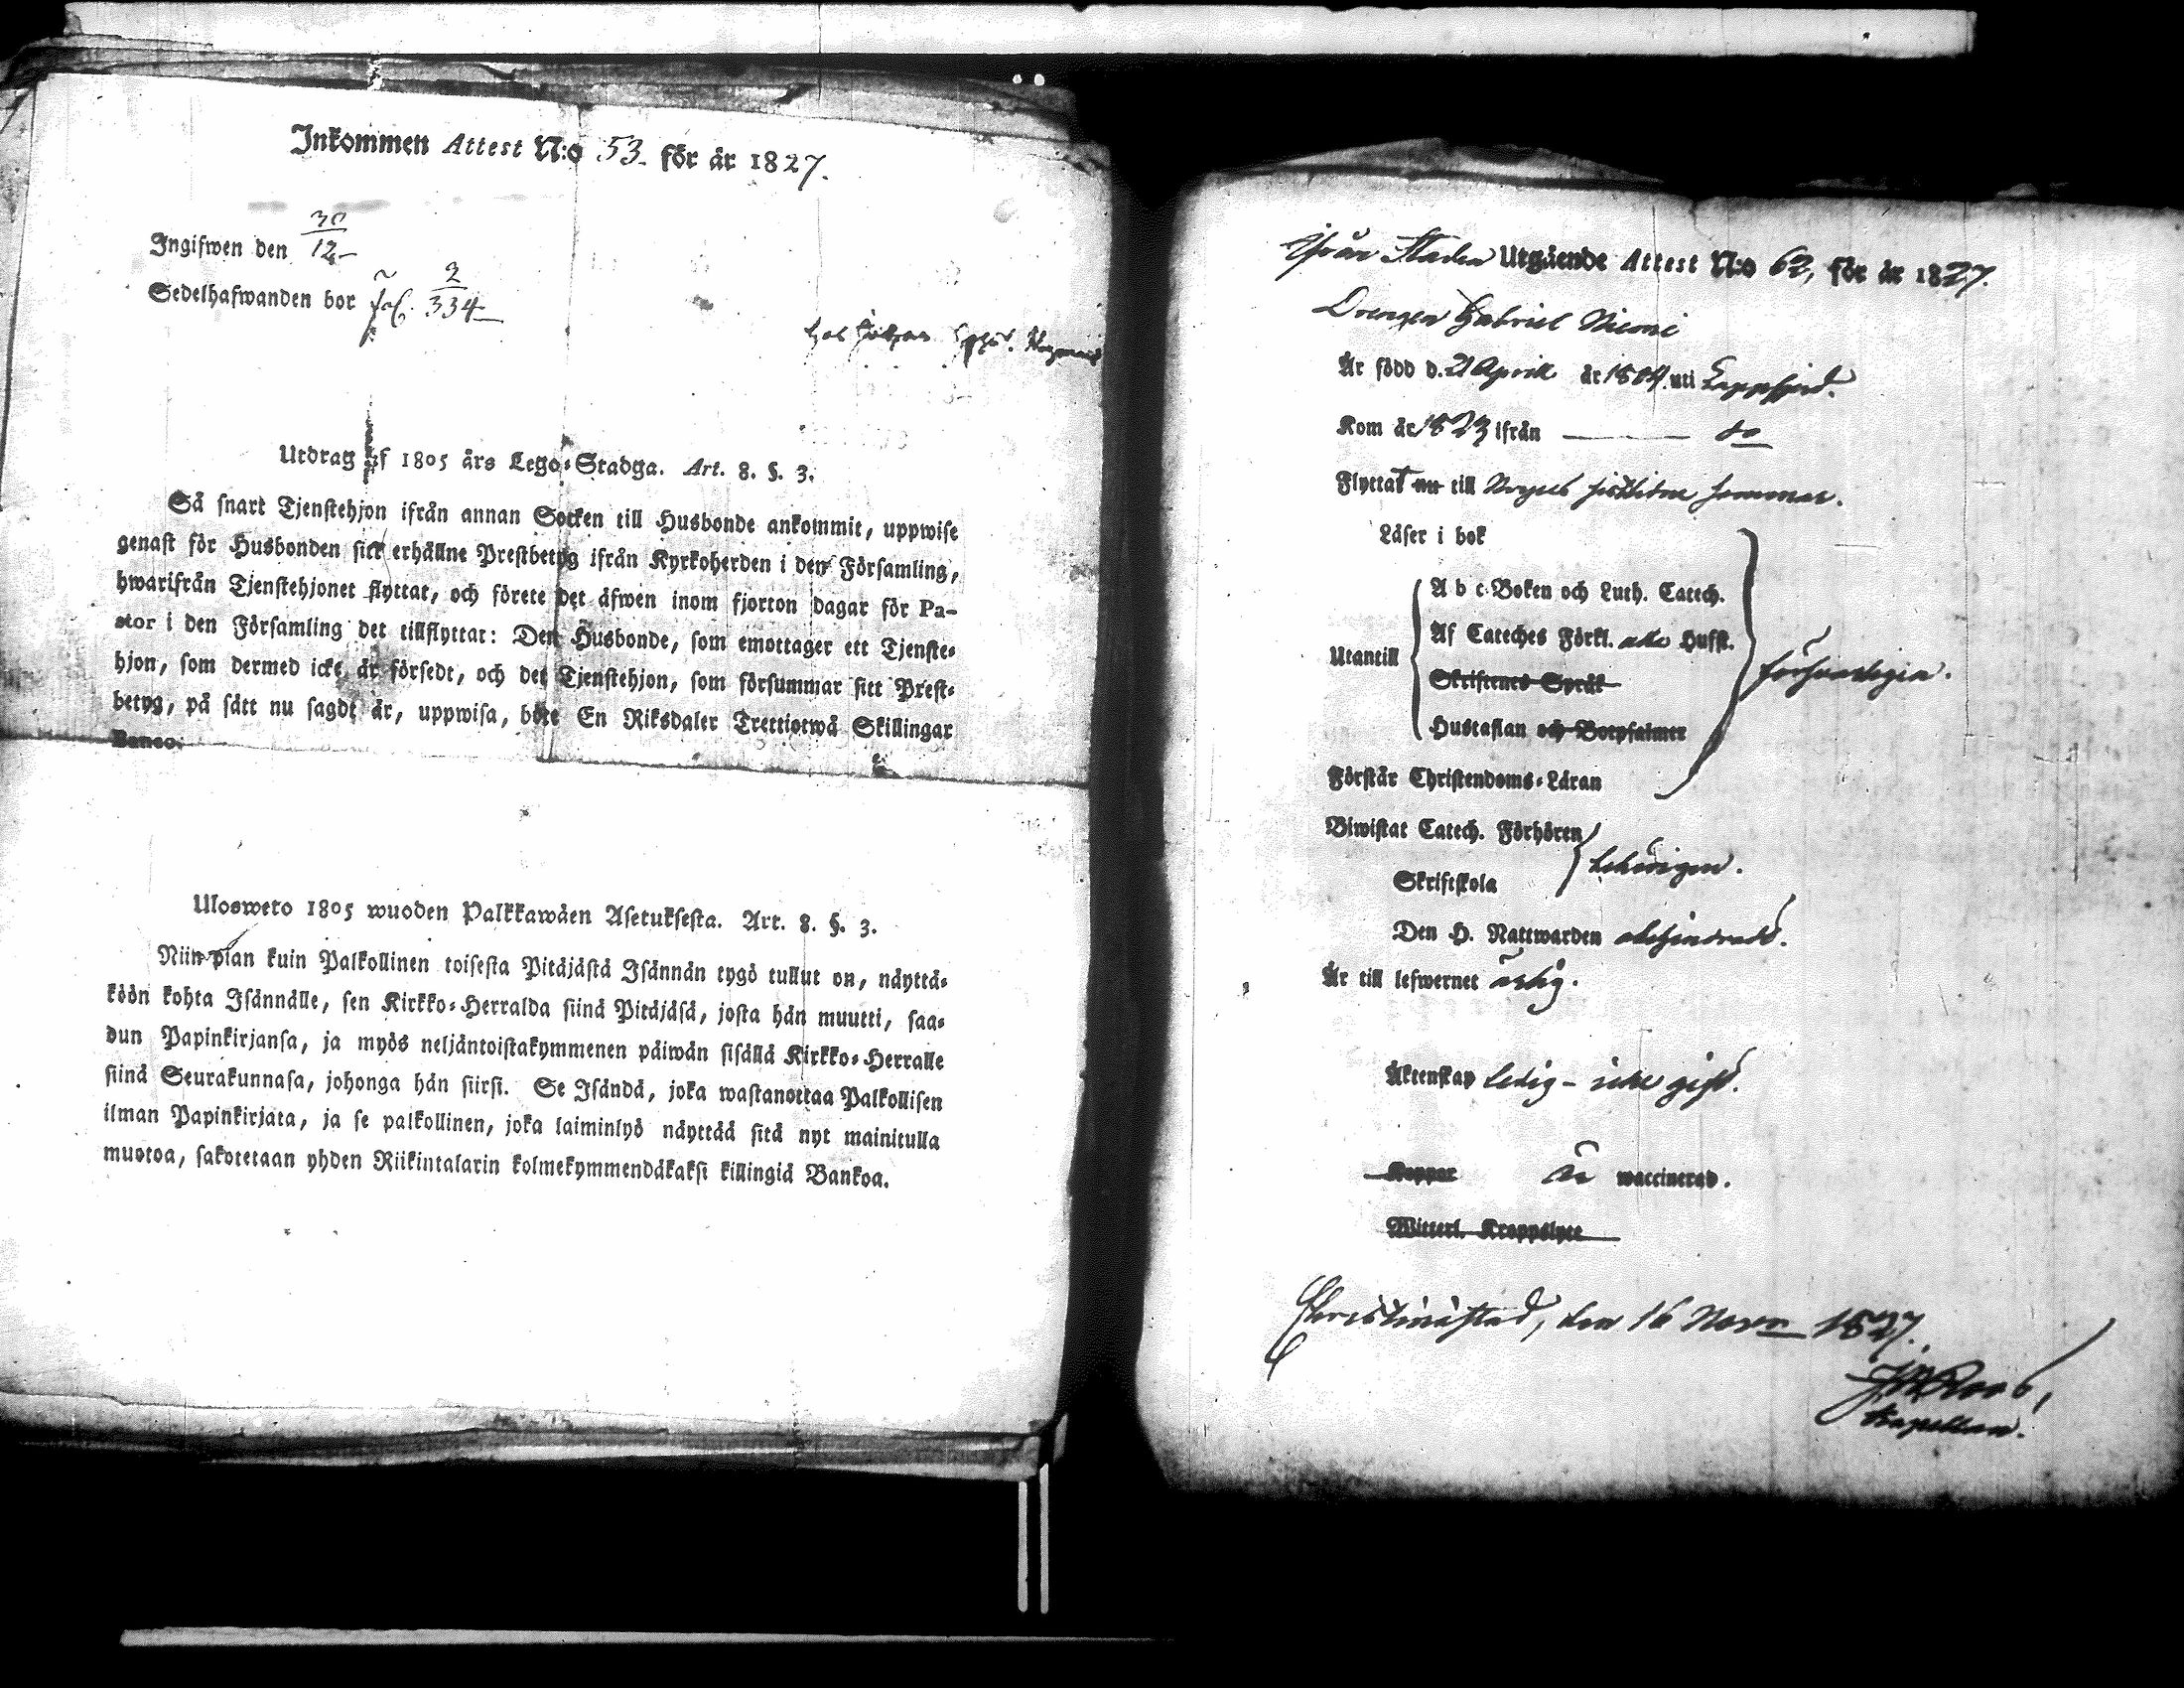 Inkommen Attest N:o 53. för år 1827.
Ingifwen den 30/12
Sedelhafwanden bor fol. 2/334
Utdrag af 1805 års Lego-Stadga. Art. 8. §. 3.
Så snart Tjenstehjon ifrån annan Socken till Husbonde ankommit, uppwise
genast för Husbonden sitt erhållne Prestbetyg ifrån Kyrkoherden i den Församling,
hwarifrån Tjenstehjonet flyttat, och förete det äfwen inom fjorton dagar för Pa-
stor i den Församling det tillflyttar: Den Husbonde, som emottager ett Tjenste-
hjon, som dermed icke är försedt, och det Tjenstehjon, som försummar sitt Prest-
betyg, på sätt nu sagdt är, uppwisa, böte En Riksdaler Trettiotwå Skillingar
Banco.
Ulosweto 1805 wuoden Palkkawäen Asetuksesta. Art. 8. §. 3.
Niin pian kuin Palkollinen toisesta Pitäjästä Isännän tygö tullut on, näyttä-
köön kohta Isännälle, sen Kirkko-Herralda siinä Pitäjäsä, josta hän muutti, saa-
dun Papinkirjansa, ja myös neljäntoistakymmenen päiwän sisällä Kirkko-Herralle
siinä Seurakunnasa, johonga hän siirsi. Se Isändä, joka wastanottaa Palkollisen
ilman Papinkirjata, ja se palkollinen, joka laiminlyö näyttää sitä nyt mainitulla
muotoa, sakotetaan yhden Riikintalarin kolmekymmendäkaksi killingiä Bankoa.
Ifrån Staden Utgående Attest N:o 62, för år 1827.
Drengen Gabriel Niemi
Är född d. 21 Aprill år 1804 uti Lappfjerd.
Kom år 1823 ifrån do
Flyttat nu till sistledne sommar.
Läser i bok
Utantill
A b c-Boken och Luth. Catech.
Af Cateches Förkl. alla Hufst.
Skriftenes Språk
Hustaflan och Botpsalmer
försvarligen.
Förstår Christendoms-Läran
Biwistat Catech. Förhören
Skriftskola
behörigen.
Den H. Nattwarden obehindrad.
Är till lefwernet ärlig.
Äktenskap ledig - icke gift.
Koppor är waccinerad.
Witterl. Kroppslyte
Christinæstad, den 16 Noven 1827.
Kapellan.